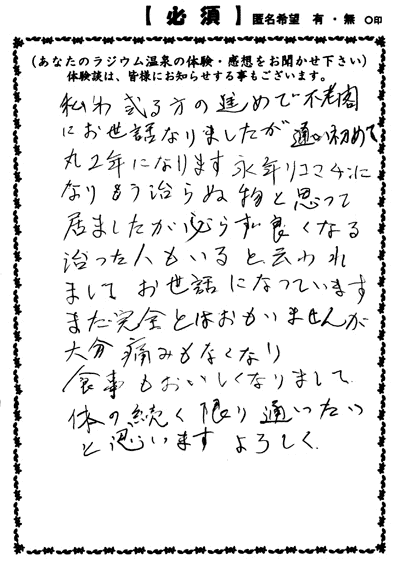 【必須】 匿名希望 有・無 ○印
(あなたのラジウム温泉の体験・感想をお聞かせ下さい)
体験談は、皆様にお知らせする事もございます。
私わ或る方の進めで不老園
にお世話なりましたが通い初めて
丸2年になります永年リユマチに
なりもう治らぬ物と思って
居ましたが必らず良くなる
治った人もいると云われ
ましてお世話になっています
まだ完全とはおもいませんが
大分痛みもなくなり
食事もおいしくなりまして
体の続く限り通いたい
と思います よろしく